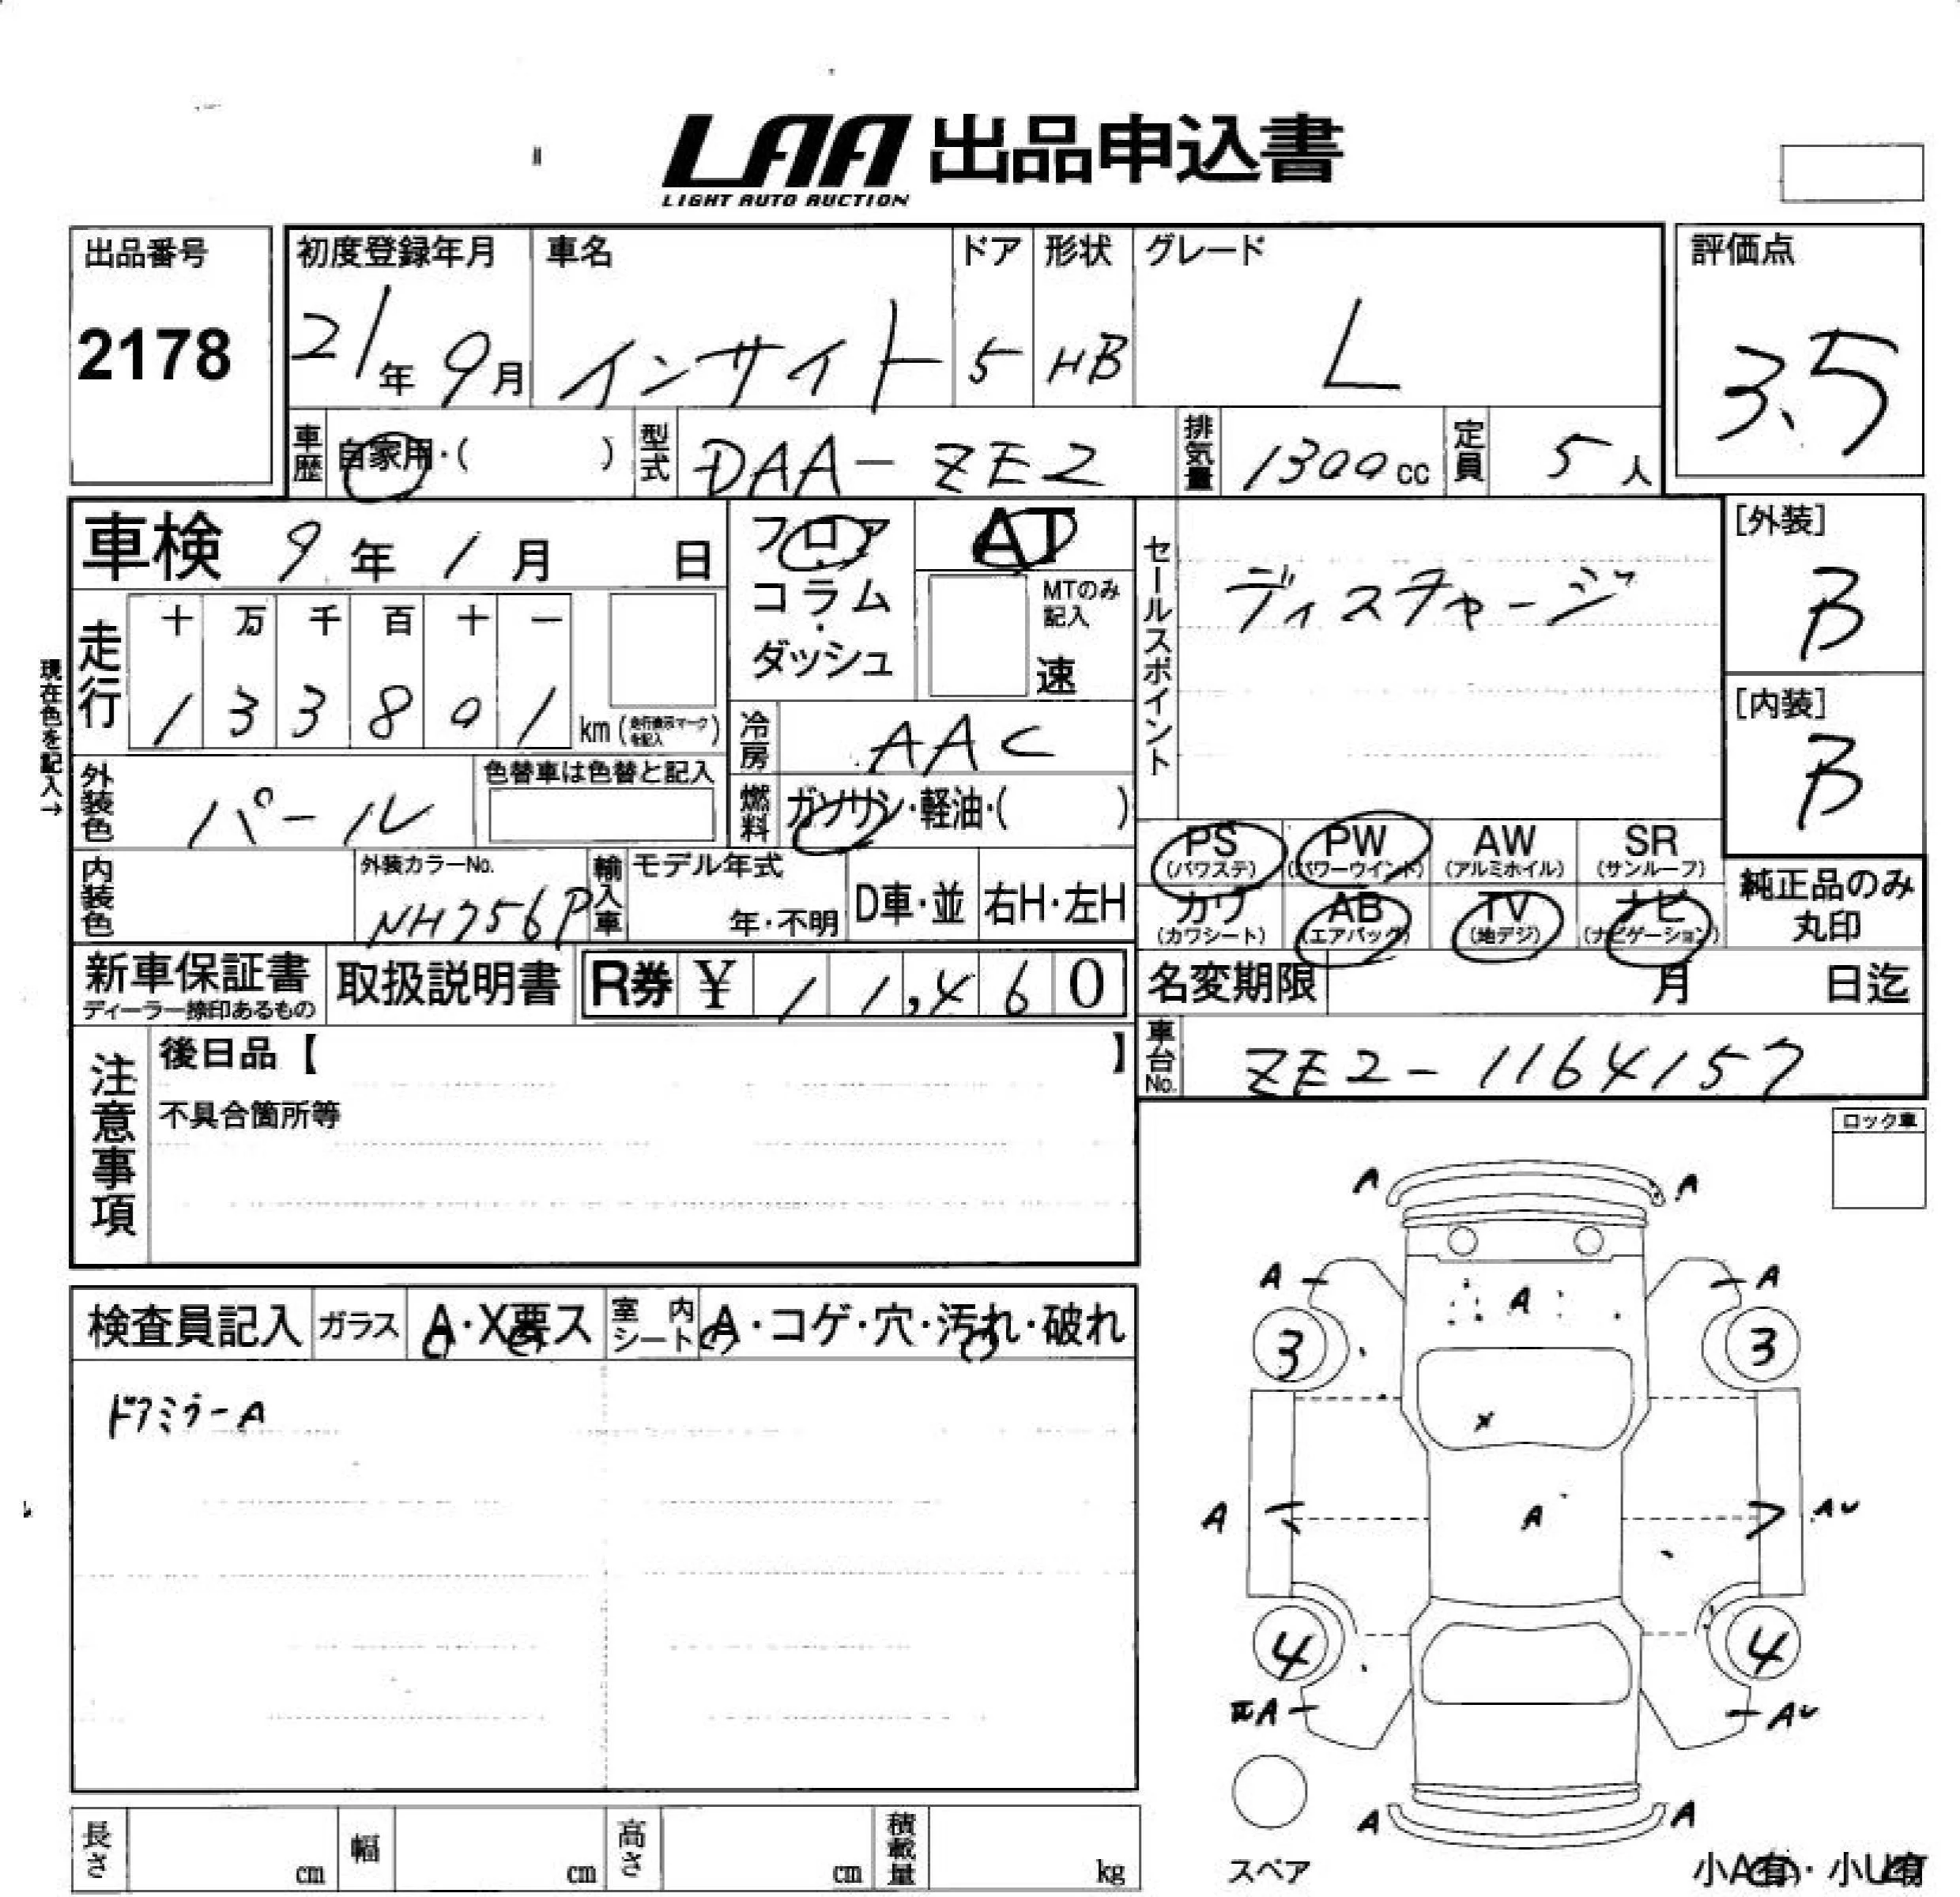 LAA 出品申込書
LIGHT AUTO AUCTION
出品番号
2178
初度登録年月 車名 ドア 形状 グレード
21年 9月 インサイト 5 HB L
評価点
3.5
車歴 自家用・( ) 型式 DAA-ZE2 排気量 1300cc 定員 5人
車検 9年 1月 日
フロア・コラム・ダッシュ
AT
MTのみ記入
速
セールスポイント
ディスチャージ
[外装]
B
[内装]
B
現在色を記入→
走行 十 万 千 百 十 一
1 3 3 8 0 1 km (走行表示マークを記入)
冷房 AAC
外装色 パール
色替車は色替と記入
燃料 ガソリン・軽油・( )
内装色
外装カラーNo.
NH756P
輸入車 モデル年式
年・不明 D車・並 右H・左H
PS (パワステ) PW (パワーウインド) AW (アルミホイル) SR (サンルーフ)
カワ (カワシート) AB (エアバック) TV (地デジ) ナビ (ナビゲーション)
純正品のみ
丸印
新車保証書
ディーラー捺印あるもの
取扱説明書
R券 ¥ 11,460
名変期限 月 日迄
車台No. ZE2-1164157
注意事項
後日品【 】
不具合箇所等
ロック車
検査員記入 ガラス A・X要ス 室内シート A・コゲ・穴・汚れ・破れ
ドアミラーA
A A
A A A
3 3
X
A A AU
4 4
A AU
A A
スペア
小A有・小U有
長さ cm 幅 cm 高さ cm 積載量 kg